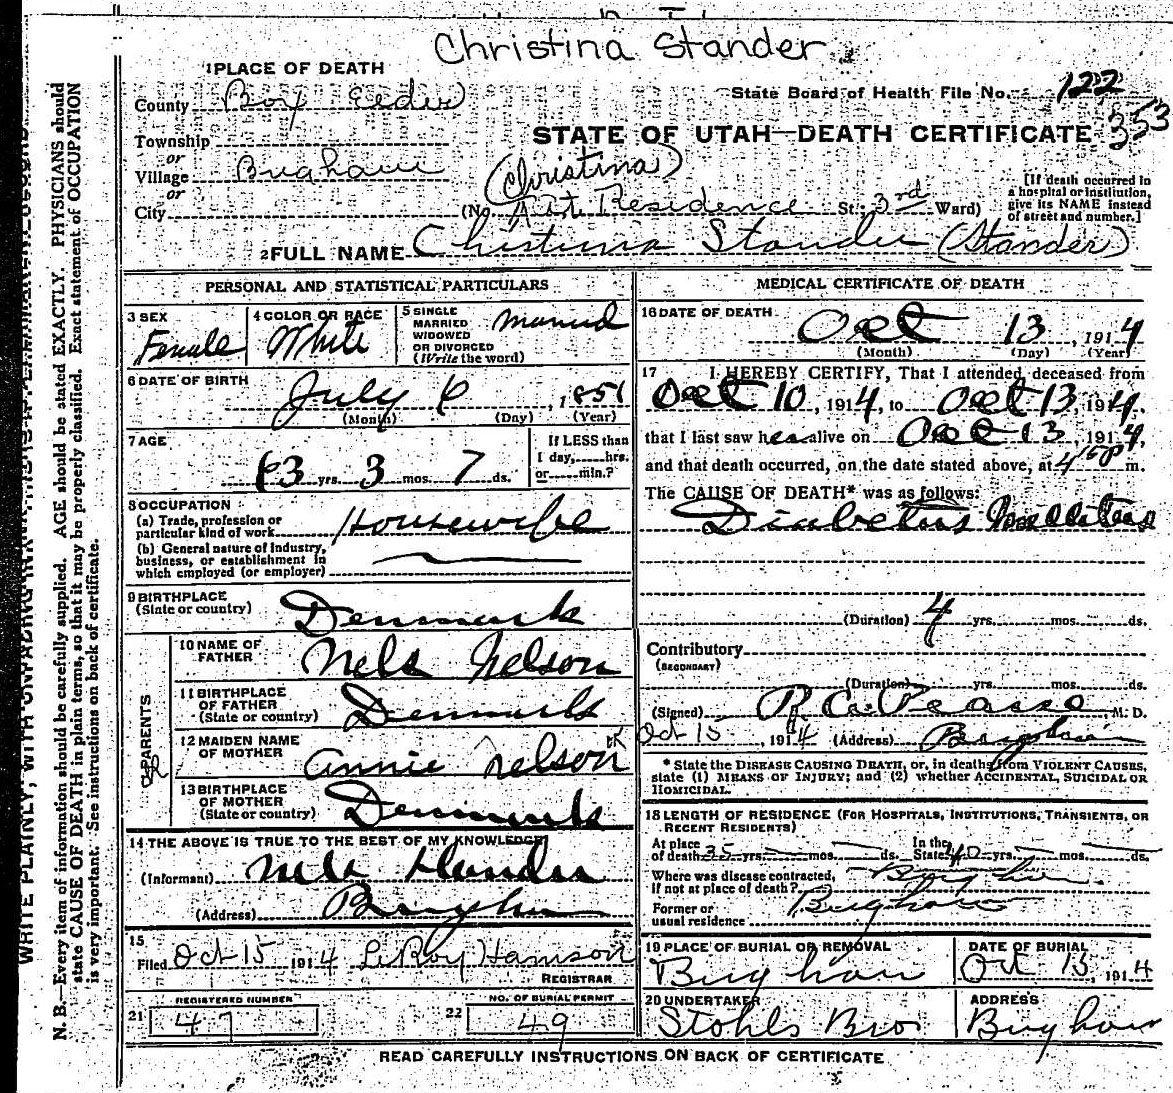 Christina Stander
1 PLACE OF DEATH
County Box Elder
State Board of Health File No. 122
353
STATE OF UTAH—DEATH CERTIFICATE
Township
or
Village Brigham
or
City
(Christina)
(No. At Residence St; 3rd Ward)
[If death occurred in
a hospital or institution,
give its NAME instead
of street and number.]
2 FULL NAME Christina Stander (Stander)
PERSONAL AND STATISTICAL PARTICULARS
3 SEX
Female
4 COLOR OR RACE
White
5 SINGLE
MARRIED
WIDOWED
OR DIVORCED
(Write the word)
Married
6 DATE OF BIRTH
July 6, 1851
(Month) (Day) (Year)
7 AGE
63 yrs. 3 mos. 7 ds.
If LESS than
1 day, hrs.
or min.?
8 OCCUPATION
(a) Trade, profession or
particular kind of work Housewife
(b) General nature of Industry,
business, or establishment in
which employed (or employer)
9 BIRTHPLACE
(State or country) Denmark
PARENTS
10 NAME OF
FATHER Nels Nelson
11 BIRTHPLACE
OF FATHER
(State or country) Denmark
12 MAIDEN NAME
OF MOTHER Annie Nelson
OK
13 BIRTHPLACE
OF MOTHER
(State or country) Denmark
14 THE ABOVE IS TRUE TO THE BEST OF MY KNOWLEDGE
(Informant) Nels
(Address) Brigham
15
Filed Oct 15 1914 LeRoy
REGISTRAR
21 REGISTERED NUMBER
47
22 NO. OF BURIAL PERMIT
49
MEDICAL CERTIFICATE OF DEATH
16 DATE OF DEATH
Oct 13, 1914
(Month) (Day) (Year)
17 I HEREBY CERTIFY, That I attended deceased from
Oct 10, 1914, to Oct 13, 1914.
that I last saw her alive on Oct 13, 1914,
and that death occurred, on the date stated above, at m.
The CAUSE OF DEATH* was as follows:
Diabetus Mellitus
(Duration) 4 yrs. mos. ds.
Contributory
(SECONDARY)
(Duration) yrs. mos. ds.
(Signed) M. D.
Oct 15, 1914 (Address) Brigham
* State the DISEASE CAUSING DEATH, or, in deaths from VIOLENT CAUSES,
state (1) MEANS OF INJURY; and (2) whether ACCIDENTAL, SUICIDAL OR
HOMICIDAL.
18 LENGTH OF RESIDENCE (FOR HOSPITALS, INSTITUTIONS, TRANSIENTS, OR
RECENT RESIDENTS)
At place
of death 35 yrs. mos. ds.
In the
State 40 yrs. mos. ds.
Where was disease contracted,
If not at place of death? Brigham
Former or
usual residence Brigham
19 PLACE OF BURIAL OR REMOVAL
Brigham
DATE OF BURIAL
Oct 15, 1914
20 UNDERTAKER
Stohls Bro
ADDRESS
Brigham
READ CAREFULLY INSTRUCTIONS ON BACK OF CERTIFICATE
N. B.—Every item of information should be carefully supplied. AGE should be stated EXACTLY. PHYSICIANS should
state CAUSE OF DEATH in plain terms, so that it may be properly classified. Exact statement of OCCUPATION
is very important. See instructions on back of certificate.
WRITE PLAINLY, WITH UNFADING INK